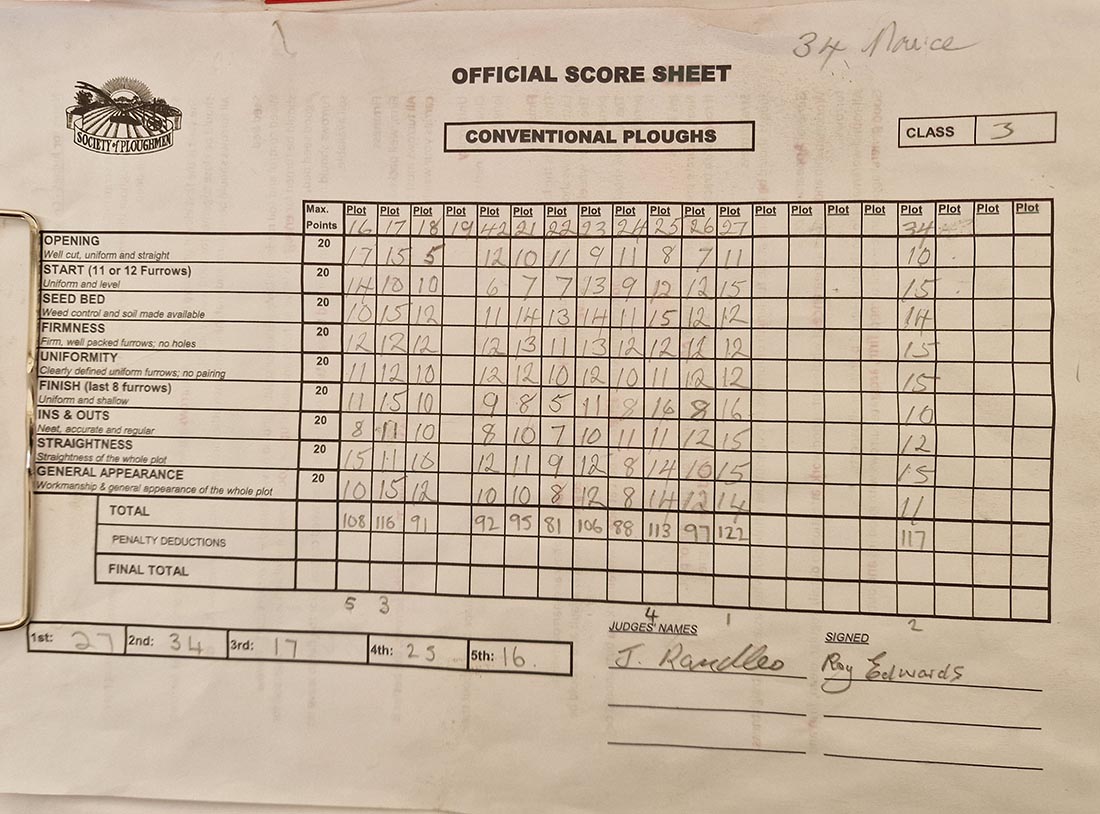 34 Novice
OFFICIAL SCORE SHEET
SOCIETY of PLOUGHMEN
CONVENTIONAL PLOUGHS
CLASS 3
Max. Points Plot 16 Plot 17 Plot 18 Plot 19 Plot 42 Plot 21 Plot 22 Plot 23 Plot 24 Plot 25 Plot 26 Plot 27 Plot Plot Plot Plot Plot 34 Plot Plot Plot
OPENING 20 17 15 5 12 10 11 9 11 8 7 11 10
Well cut, uniform and straight
START (11 or 12 Furrows) 20 14 10 10 6 7 7 13 9 12 12 15 15
Uniform and level
SEED BED 20 10 15 12 11 14 13 14 11 15 12 12 14
Weed control and soil made available
FIRMNESS 20 12 12 12 12 13 11 13 12 12 12 12 15
Firm, well packed furrows; no holes
UNIFORMITY 20 11 12 10 12 12 10 12 10 11 12 12 15
Clearly defined uniform furrows; no pairing
FINISH (last 8 furrows) 20 11 15 10 9 8 5 11 8 16 8 16 10
Uniform and shallow
INS & OUTS 20 8 11 10 8 10 7 10 11 11 12 15 12
Neat, accurate and regular
STRAIGHTNESS 20 15 11 10 12 11 9 12 8 14 10 15 15
Straightness of the whole plot
GENERAL APPEARANCE 20 10 15 12 10 10 8 12 8 14 12 14 11
Workmanship & general appearance of the whole plot
TOTAL 108 116 91 92 95 81 106 88 113 97 122 117
PENALTY DEDUCTIONS
FINAL TOTAL
5 3 4 1 2
1st: 27 2nd: 34 3rd: 17 4th: 25 5th: 16.
JUDGES' NAMES SIGNED
J. Randles Roy Edwards